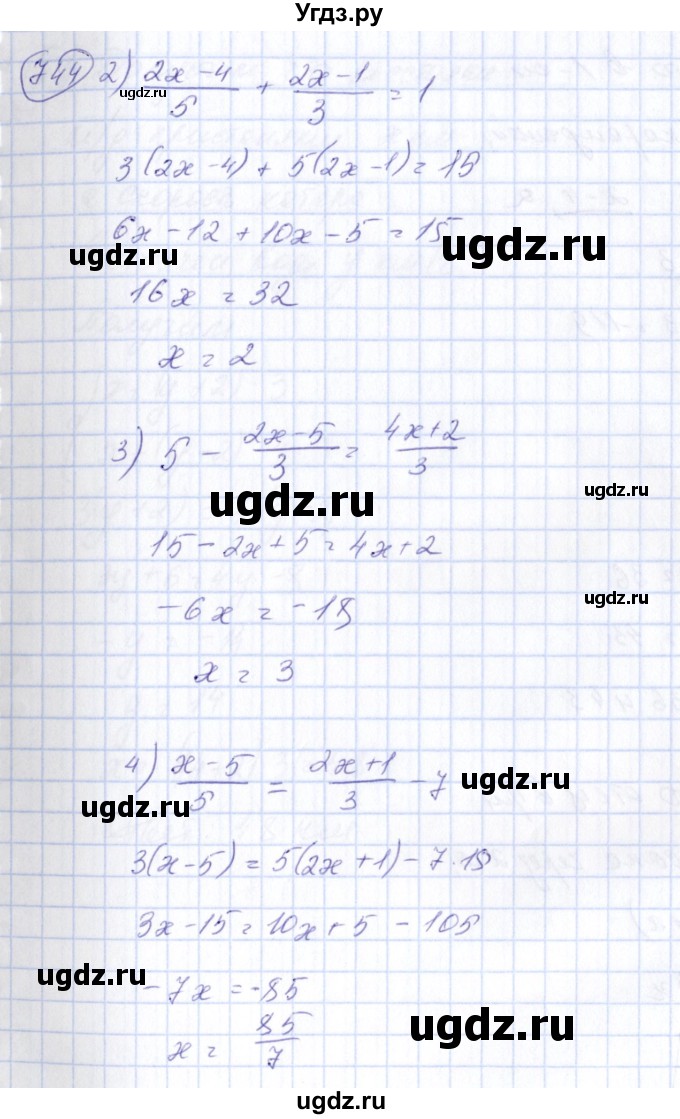 Угдз.ру
744 2) (2x-4)/5 + (2x-1)/3 = 1
ugdz.ru
3(2x-4) + 5(2x-1) = 15
6x-12+10x-5=15
ugdz.ru
ugdz.ru
16x = 32
x = 2
3) 5 - (2x-5)/3 = (4x+2)/3
ugdz.ru
ugdz.ru
15-2x+5=4x+2
ugdz.ru
-6x = -18
x = 3
4) (x-5)/5 = (2x+1)/3 - 7
ugdz.ru
ugdz.ru
3(x-5) = 5(2x+1) - 7·15
3x-15=10x+5-105
ugdz.ru
-7x = -85
x = 85/7
ugdz.ru
ugdz.ru